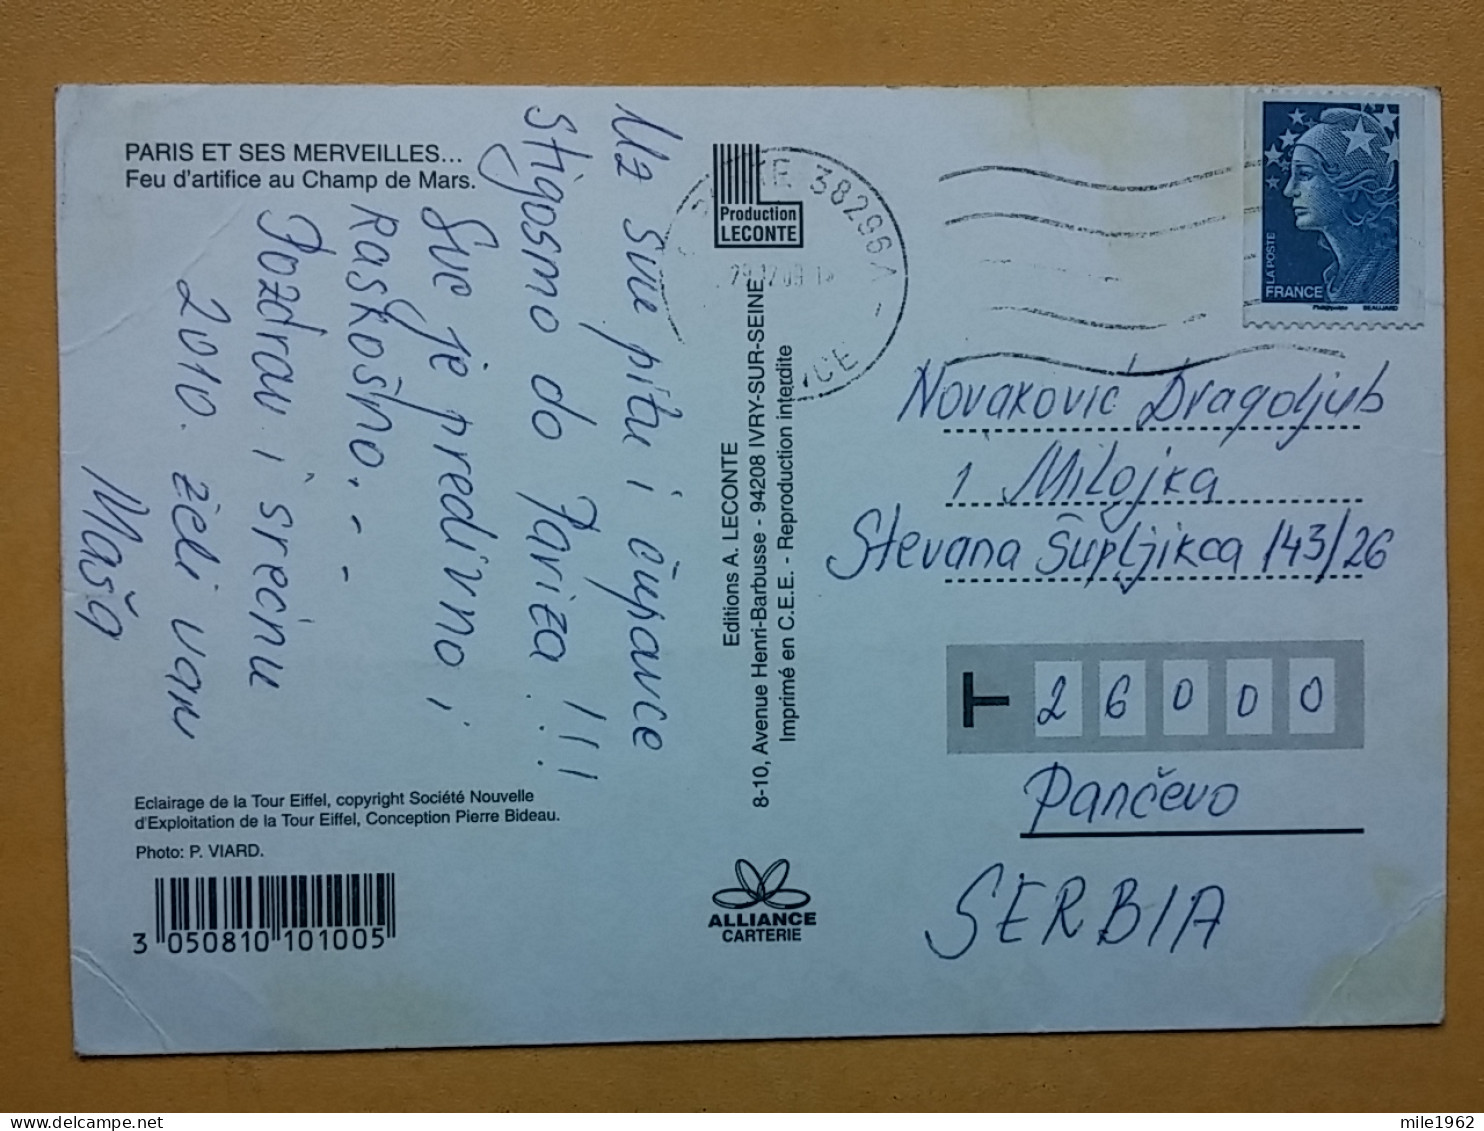 PARIS ET SES MERVEILLES...
Feu d'artifice au Champ de Mars.
Uz sve pitu i čupavce
stigosmo do Pariza!!!
Sve je predivno i
raskošno...
Pozdrav i srećnu
2010. želi vam
Maša
Eclairage de la Tour Eiffel, copyright Société Nouvelle
d'Exploitation de la Tour Eiffel, Conception Pierre Bideau.
Photo: P. VIARD.
3 050810 101005
Production
LECONTE
Editions A. LECONTE
8-10, Avenue Henri-Barbusse - 94208 IVRY-SUR-SEINE
Imprimé en C.E.E. - Reproduction interdite
ALLIANCE
CARTERIE
38296A -
29.12.09
LA POSTE
FRANCE
BEAUJARD
Novaković Dragoljub
i Milojka
Stevana Šupljikca 143/26
T 26000
Pančevo
SERBIA
mile1962